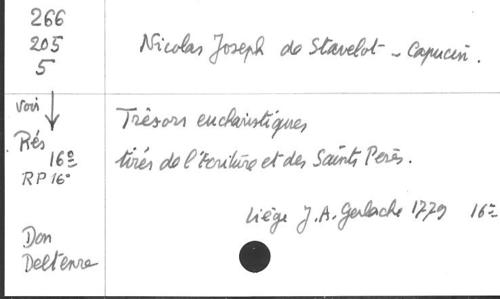 266
205
5
Nicolas Joseph de Stavelot - Capucin.
voir
Rés
16º
RP 16º
Trésors eucharistiques
tirés de l'Ecriture et des Saints Pères.
Liège J. A. Gerlache 1779 16º
Don
Deltenre